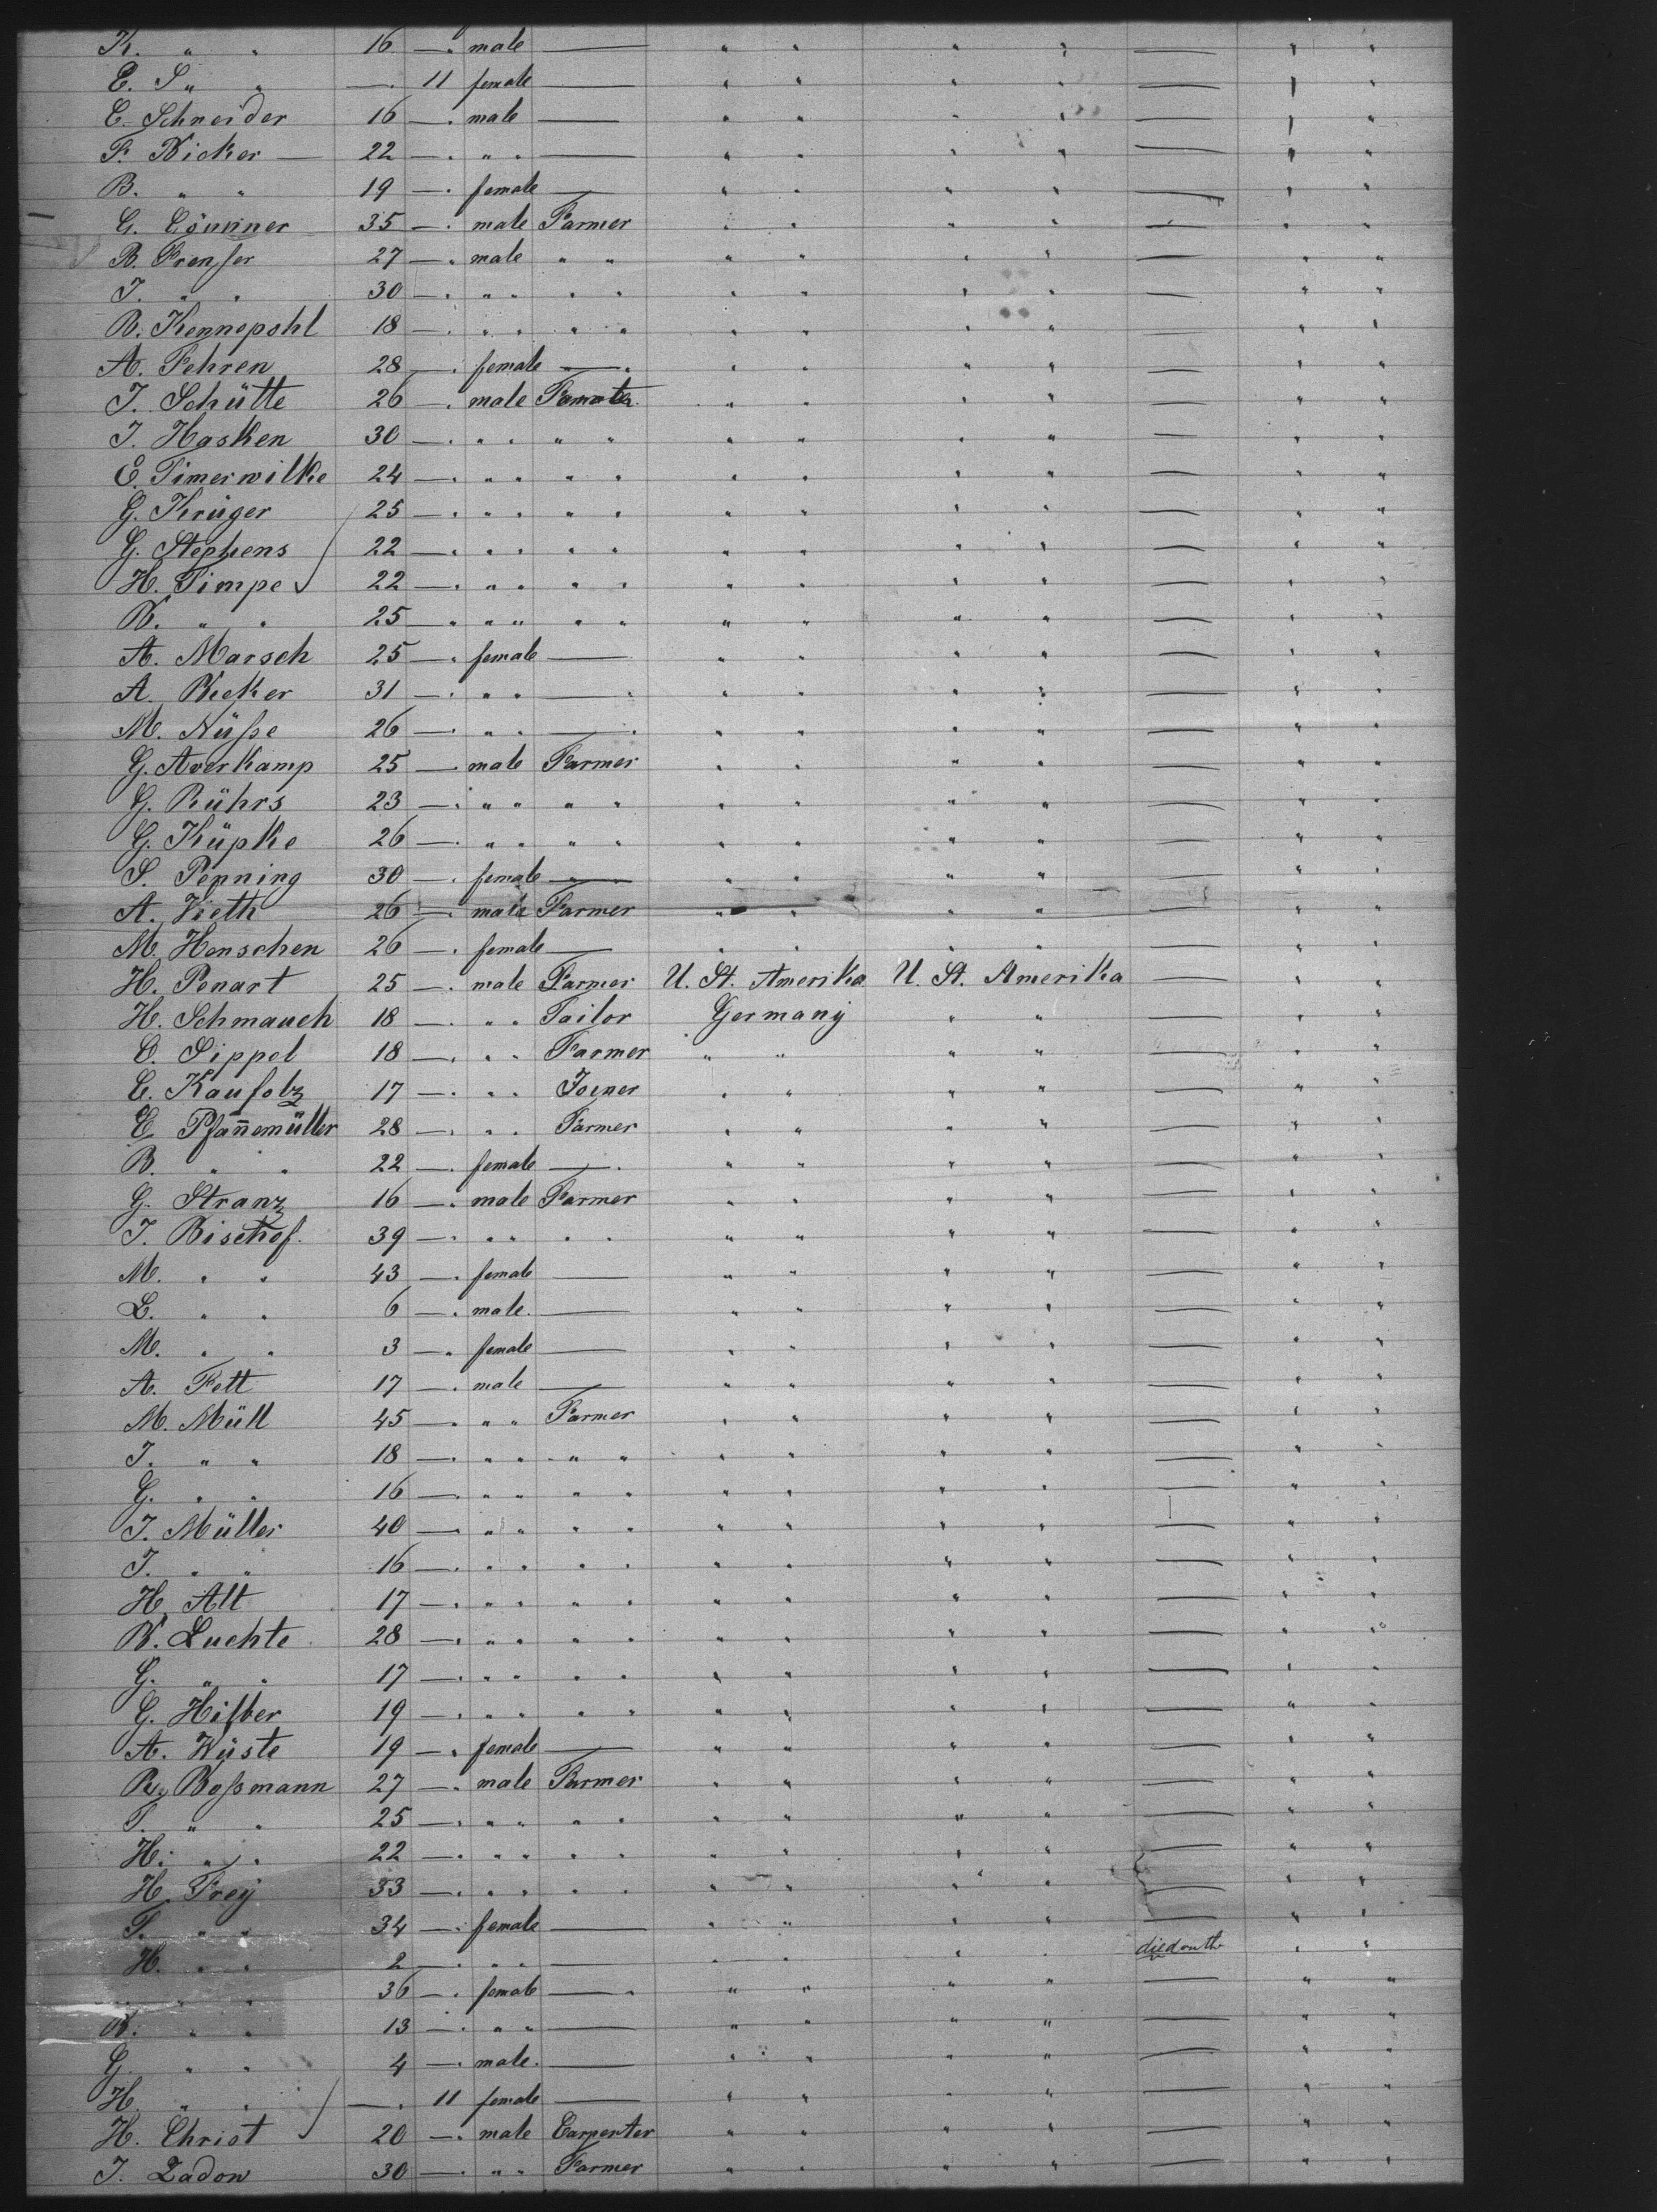 K. " " 16 — " male — " " " " — " "
E. S " " — . 11 female — " " " " — " "
C. Schneider 16 — . male — " " " " — " "
F. Wicker — 22 — . " " — " " " " — " "
B. " " 19 — . female — " " " " — " "
G. 35 — . male Farmer " " " " — " "
B. Frenser 27 — . male " " " " " " — " "
T. " " 30 — . " " " " " " " " — " "
B. Kennepohl 18 — . " " " " " " " " — " "
A. Fehren 28 — . female — . " " " " — " "
J. Schütte 26 — . male " " " " — " "
J. Hasken 30 — . " " " " " " " " — " "
E. Timerwilke 24 — . " " " " " " " " — " "
G. Krüger 25 — . " " " " " " " " — " "
G. Stephens 22 — . " " " " " " " " — " "
H. Timpe 22 — . " " " " " " " " — " "
W. " " 25 — . " " " " " " " " — " "
A. Marsch 25 — . female — " " " " — " "
A. 31 — . " " — " " " " — " "
M. Nüsse 26 — . " " — " " " " — " "
G. Averkamp 25 — . male Farmer " " " " — " "
G. Rührs 23 — . " " " " " " " " — " "
G. Küpke 26 — . " " " " " " " " — " "
S. Penning 30 — . female — " " " " — " "
A. Vieth 26 — . male Farmer " " " " — " "
M. Henschen 26 — . female — " " " " — " "
H. Penart 25 — . male Farmer U. St. Amerika U. St. Amerika — " "
H. Schmauch 18 — . " " Tailor Germany " " — " "
C. Sippel 18 — . " " Farmer " " " " — " "
C. Kaufolz 17 — . " " Joiner " " " " — " "
E. Pfan̄emüller 28 — . " " Farmer " " " " — " "
B. " " 22 — . female — . " " " " — " "
G. Stranz 16 — . male Farmer " " " " — " "
J. Bischof. 39 — . " " " " " " " " — " "
M. " " 43 — . female — " " " " — " "
L. " " 6 — . male. — " " " " — " "
M. " " 3 — . female — " " " " — " "
A. Fett 17 — . male — " " " " — " "
M. Müll 45 — . " " Farmer " " " " — " "
J. " " 18 — . " " " " " " " " — " "
G. " " 16 — . " " " " " " " " — " "
J. Müller 40 — . " " " " " " " " — " "
J. " " 16 — . " " " " " " " " — " "
H. Alt 17 — . " " " " " " " " — " "
W. Luchte 28 — . " " " " " " " " — " "
G. " " 17 — . " " " " " " " " — " "
G. 19 — . " " " " " " " " — " "
A. Wüste 19 — . female — " " " " — " "
Bossmann 27 — . male Farmer " " " " — " "
T. " " 25 — . " " " " " " " " — " "
H. " " 22 — . " " " " " " " " — " "
H. Frey 33 — . " " " " " " " " — " "
T. " " 34 — . female — " " " " — " "
H. " " 2 — . " " — " " " " died on th " "
" " 36 — . female — . " " " " — " "
" " 13 — . " " — " " " " — " "
G. " " 4 — . male. — " " " " — " "
H. " " — . 11 female — " " " " — " "
H. Christ 20 — . male Carpenter " " " " — " "
J. Zadow 30 — . " " Farmer " " " " — " "